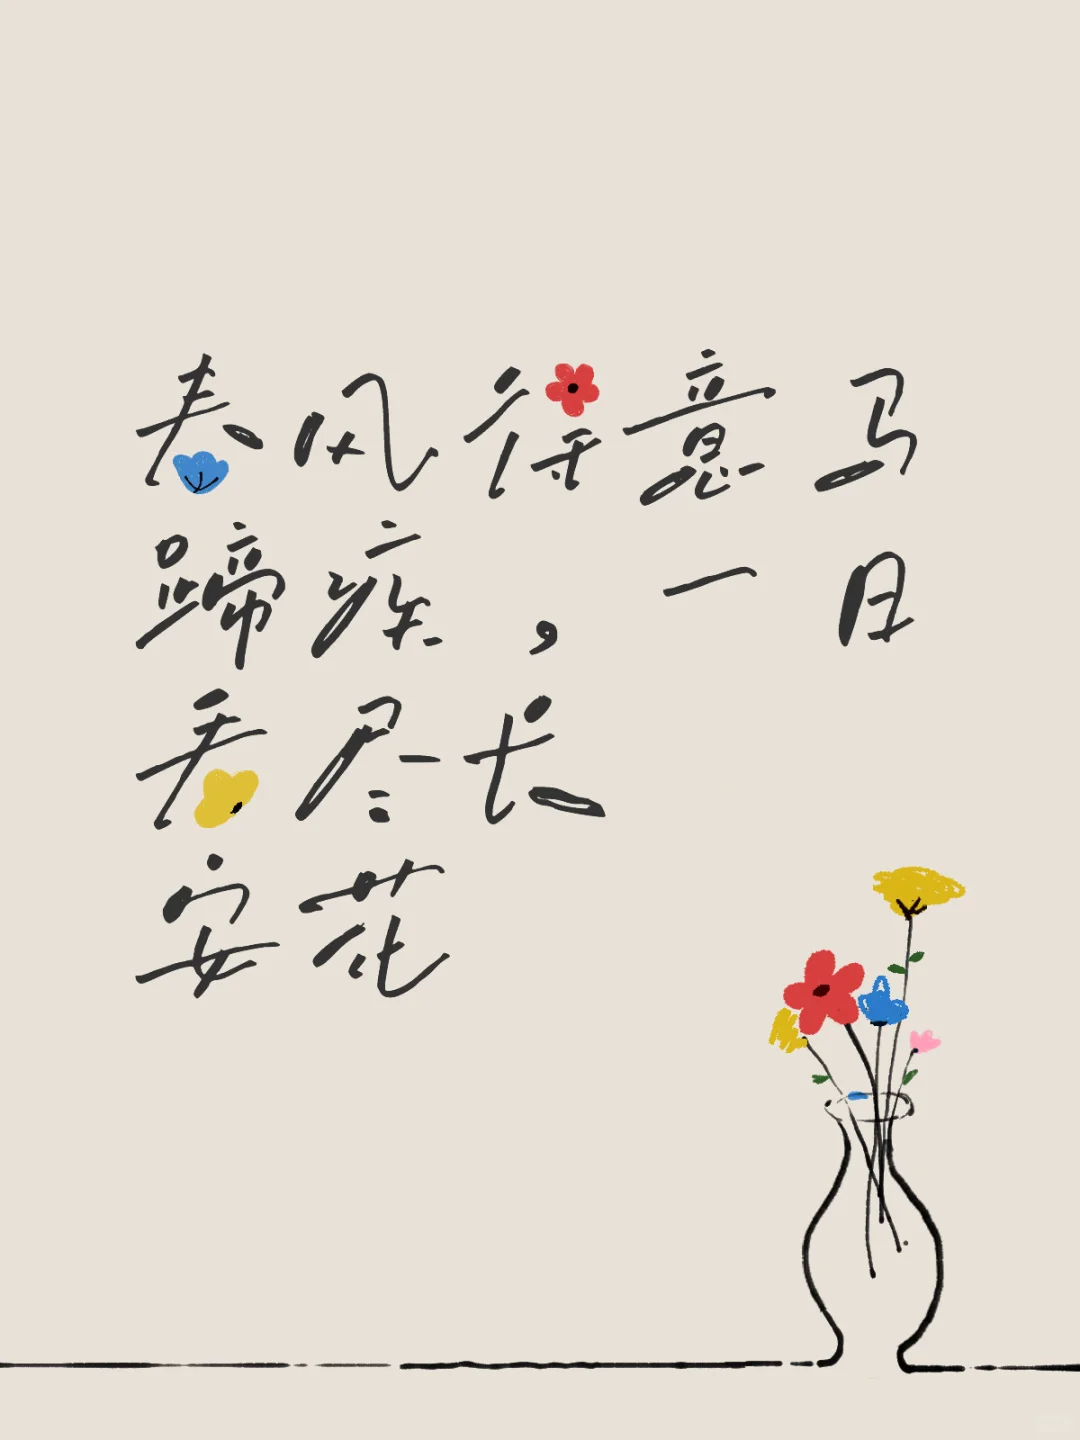 春风得意马
蹄疾，一日
看尽长
安花